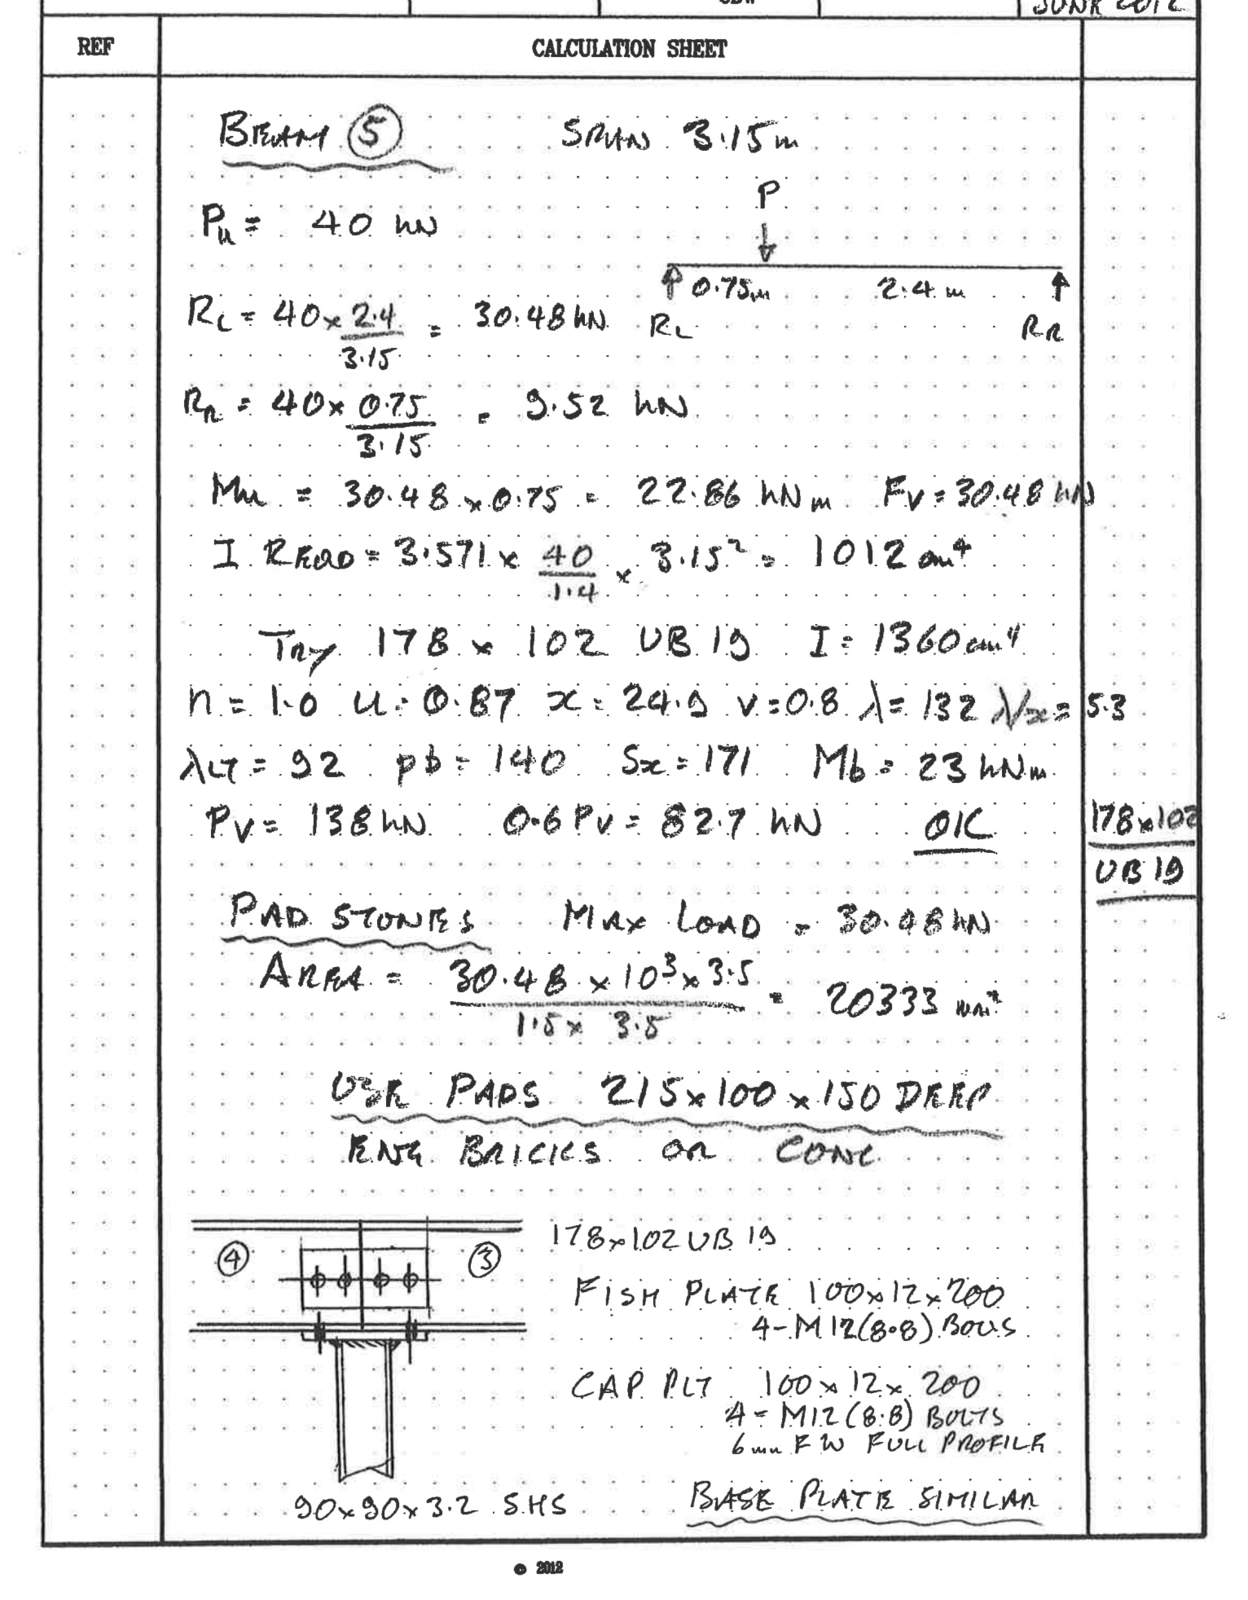 JUNE 2012
REF CALCULATION SHEET
BEAM 5 SPAN 3.15m
P
Pu = 40 kN
0.75m 2.4 m
RL = 40 x 2.4 / 3.15 = 30.48 kN RL RR
RR = 40 x 0.75 / 3.15 = 9.52 kN
Mu = 30.48 x 0.75 = 22.86 kNm Fv = 30.48 kN
I REQD = 3.571 x 40 / 1.4 x 3.15² = 1012 cm⁴
TRY 178 x 102 UB 19 I = 1360 cm⁴
n = 1.0 u = 0.87 x = 24.9 v = 0.8 λ = 132 λ/x = 5.3
λLT = 92 pb = 140 Sx = 171 Mb = 23 kNm
Pv = 138 kN 0.6 Pv = 82.7 kN OK 178x102
UB 19
PAD STONES MAX LOAD = 30.48 kN
AREA = 30.48 x 10³ x 3.5 / 1.5 x 3.5 = 20333 mm²
USE PADS 215 x 100 x 150 DEEP
ENG BRICKS OR CONC
4 3 178x102 UB 19
FISH PLATE 100x12x200
4-M12(8.8) BOLTS
CAP PLT 100x12x200
4-M12(8.8) BOLTS
6mm FW FULL PROFILE
90x90x3.2 SHS BASE PLATE SIMILAR
© 2012